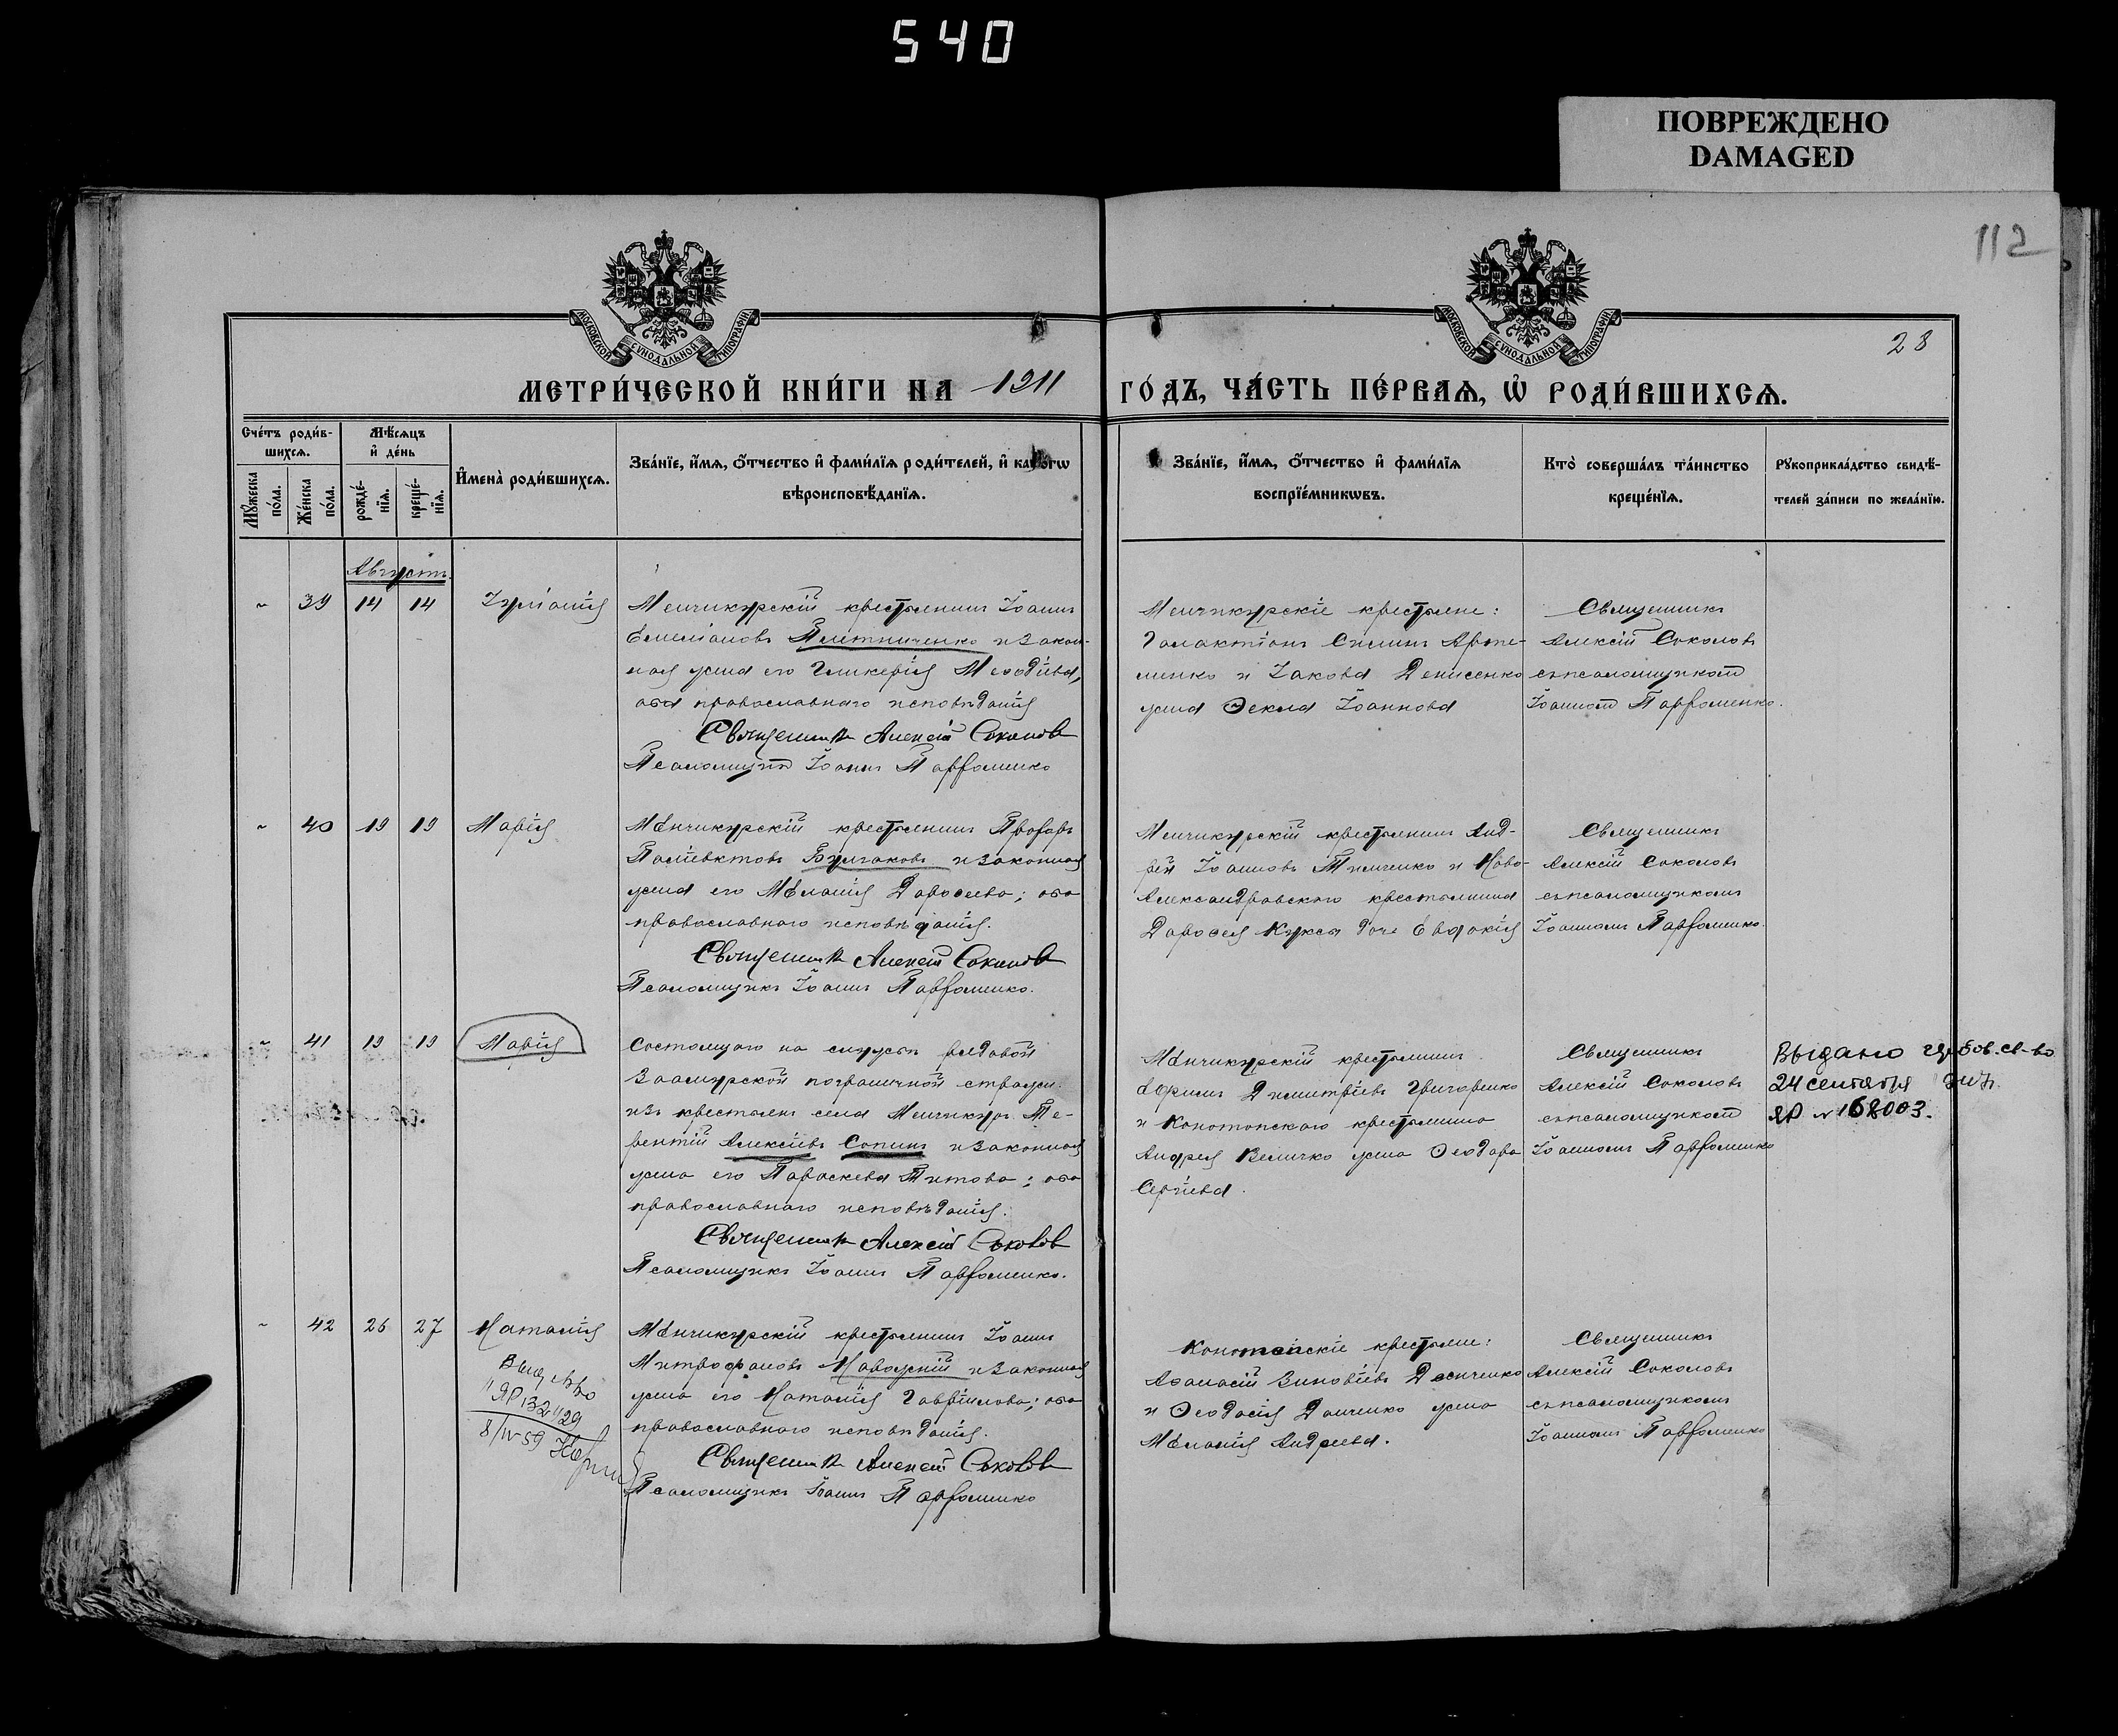 540
ПОВРЕЖДЕНО
DAMAGED
112
28
МОСКОВСКОЙ СѴНОДАЛЬНОЙ ТИПОГРАФІИ
МОСКОВСКОЙ СѴНОДАЛЬНОЙ ТИПОГРАФІИ
МЕТРИ́ЧЕСКОЙ КНИ́ГИ НА 1911 ГО́ДЪ, ЧА́СТЬ ПЕ́РВАѦ, Ѡ҆ РОДИ́ВШИХСѦ.
Сче́тъ роди́в-
шихсѧ.
Мѣ́сѧцъ
и҆ де́нь
Мꙋ́жеска по́ла.
Же́нска по́ла.
рожде́-нїѧ.
креще́-нїѧ.
И҆мена̀ роди́вшихсѧ.
Зва́нїе, и҆́мѧ, ѻ҆́тчество и҆ фами́лїѧ роди́телей, и҆ какогѡ
вѣроисповѣ́данїѧ.
Зва́нїе, и҆́мѧ, ѻ҆́тчество и҆ фами́лїѧ
воспрїе́мникѡвъ.
Кто̀ соверша́лъ та́инство
креще́нїѧ.
Рꙋкоприкла́дство свидѣ́-
телей за́писи по жела́нїю.
Августъ.
~ 39 14 14 Іуліанія
Менчикурскій крестьянинъ Іоаннъ
Емеліановъ Плетниченко и закон-
ная жена его Гликерія Меѳодіева,
оба православнаго исповѣданія
Священникъ Алексій Соколов
Псаломщикъ Іоаннъ Парфоменко
Менчикурскіе крестьяне:
Галактіонъ Силинъ Арте-
менко и Іакова Денисенко
жена Ѳекла Іоаннова
Священникъ
Алексій Соколовъ
съ псаломщикомъ
Іоанномъ Парфоменко.
~ 40 19 19 Марія
Менчикурскій крестьянинъ Прохоръ
Поліевктовъ Булгаковъ и законная
жена его Меланія Дороѳеева; оба
православнаго исповѣданія.
Священникъ Алексій Соколов
Псаломщикъ Іоаннъ Парфоменко.
Менчикурскій крестьянинъ Анд-
рей Іоанновъ Тимченко и Ново-
Александровского крестьянина
Дороѳея Куксы дочь Евдокія
Священникъ
Алексій Соколовъ
съ псаломщикомъ
Іоанномъ Парфоменко.
~ 41 19 19 Марія
Состоящаго на службѣ рядовой
Заамурской пограничной стражи
изъ крестьянъ села Менчикуръ Те-
рентій Алексіевъ Сопинъ и законная
жена его Параскева Титова; оба
православнаго исповѣданія.
Священникъ Алексій Соколов
Псаломщикъ Іоаннъ Парфоменко.
Менчикурскій крестьянинъ
Ефримъ Димитріевъ Григоренко
и Конотопскаго крестьянина
Андрея Величко жена Ѳеодора
Сергіева.
Священникъ
Алексій Соколовъ
съ псаломщикомъ
Іоанномъ Парфоменко
Выдано св-во
24 сентября
ЯР № 168003.
~ 42 26 27 Наталія
Выд св-во
"ЯР 132429
8/IV-59
Менчикурскій крестьянинъ Іоаннъ
Митрофановъ и законная
жена его Наталія Гавріилова; оба
православнаго исповѣданія.
Священникъ Алексій Соколов
Псаломщикъ Іоаннъ Парфоменко
Конотопскіе крестьяне:
Аѳанасій Зиновіевъ
и Ѳеодосія Данченко жена
Меланія Андреева.
Священникъ
Алексій Соколовъ
съ псаломщикомъ
Іоанномъ Парфоменко